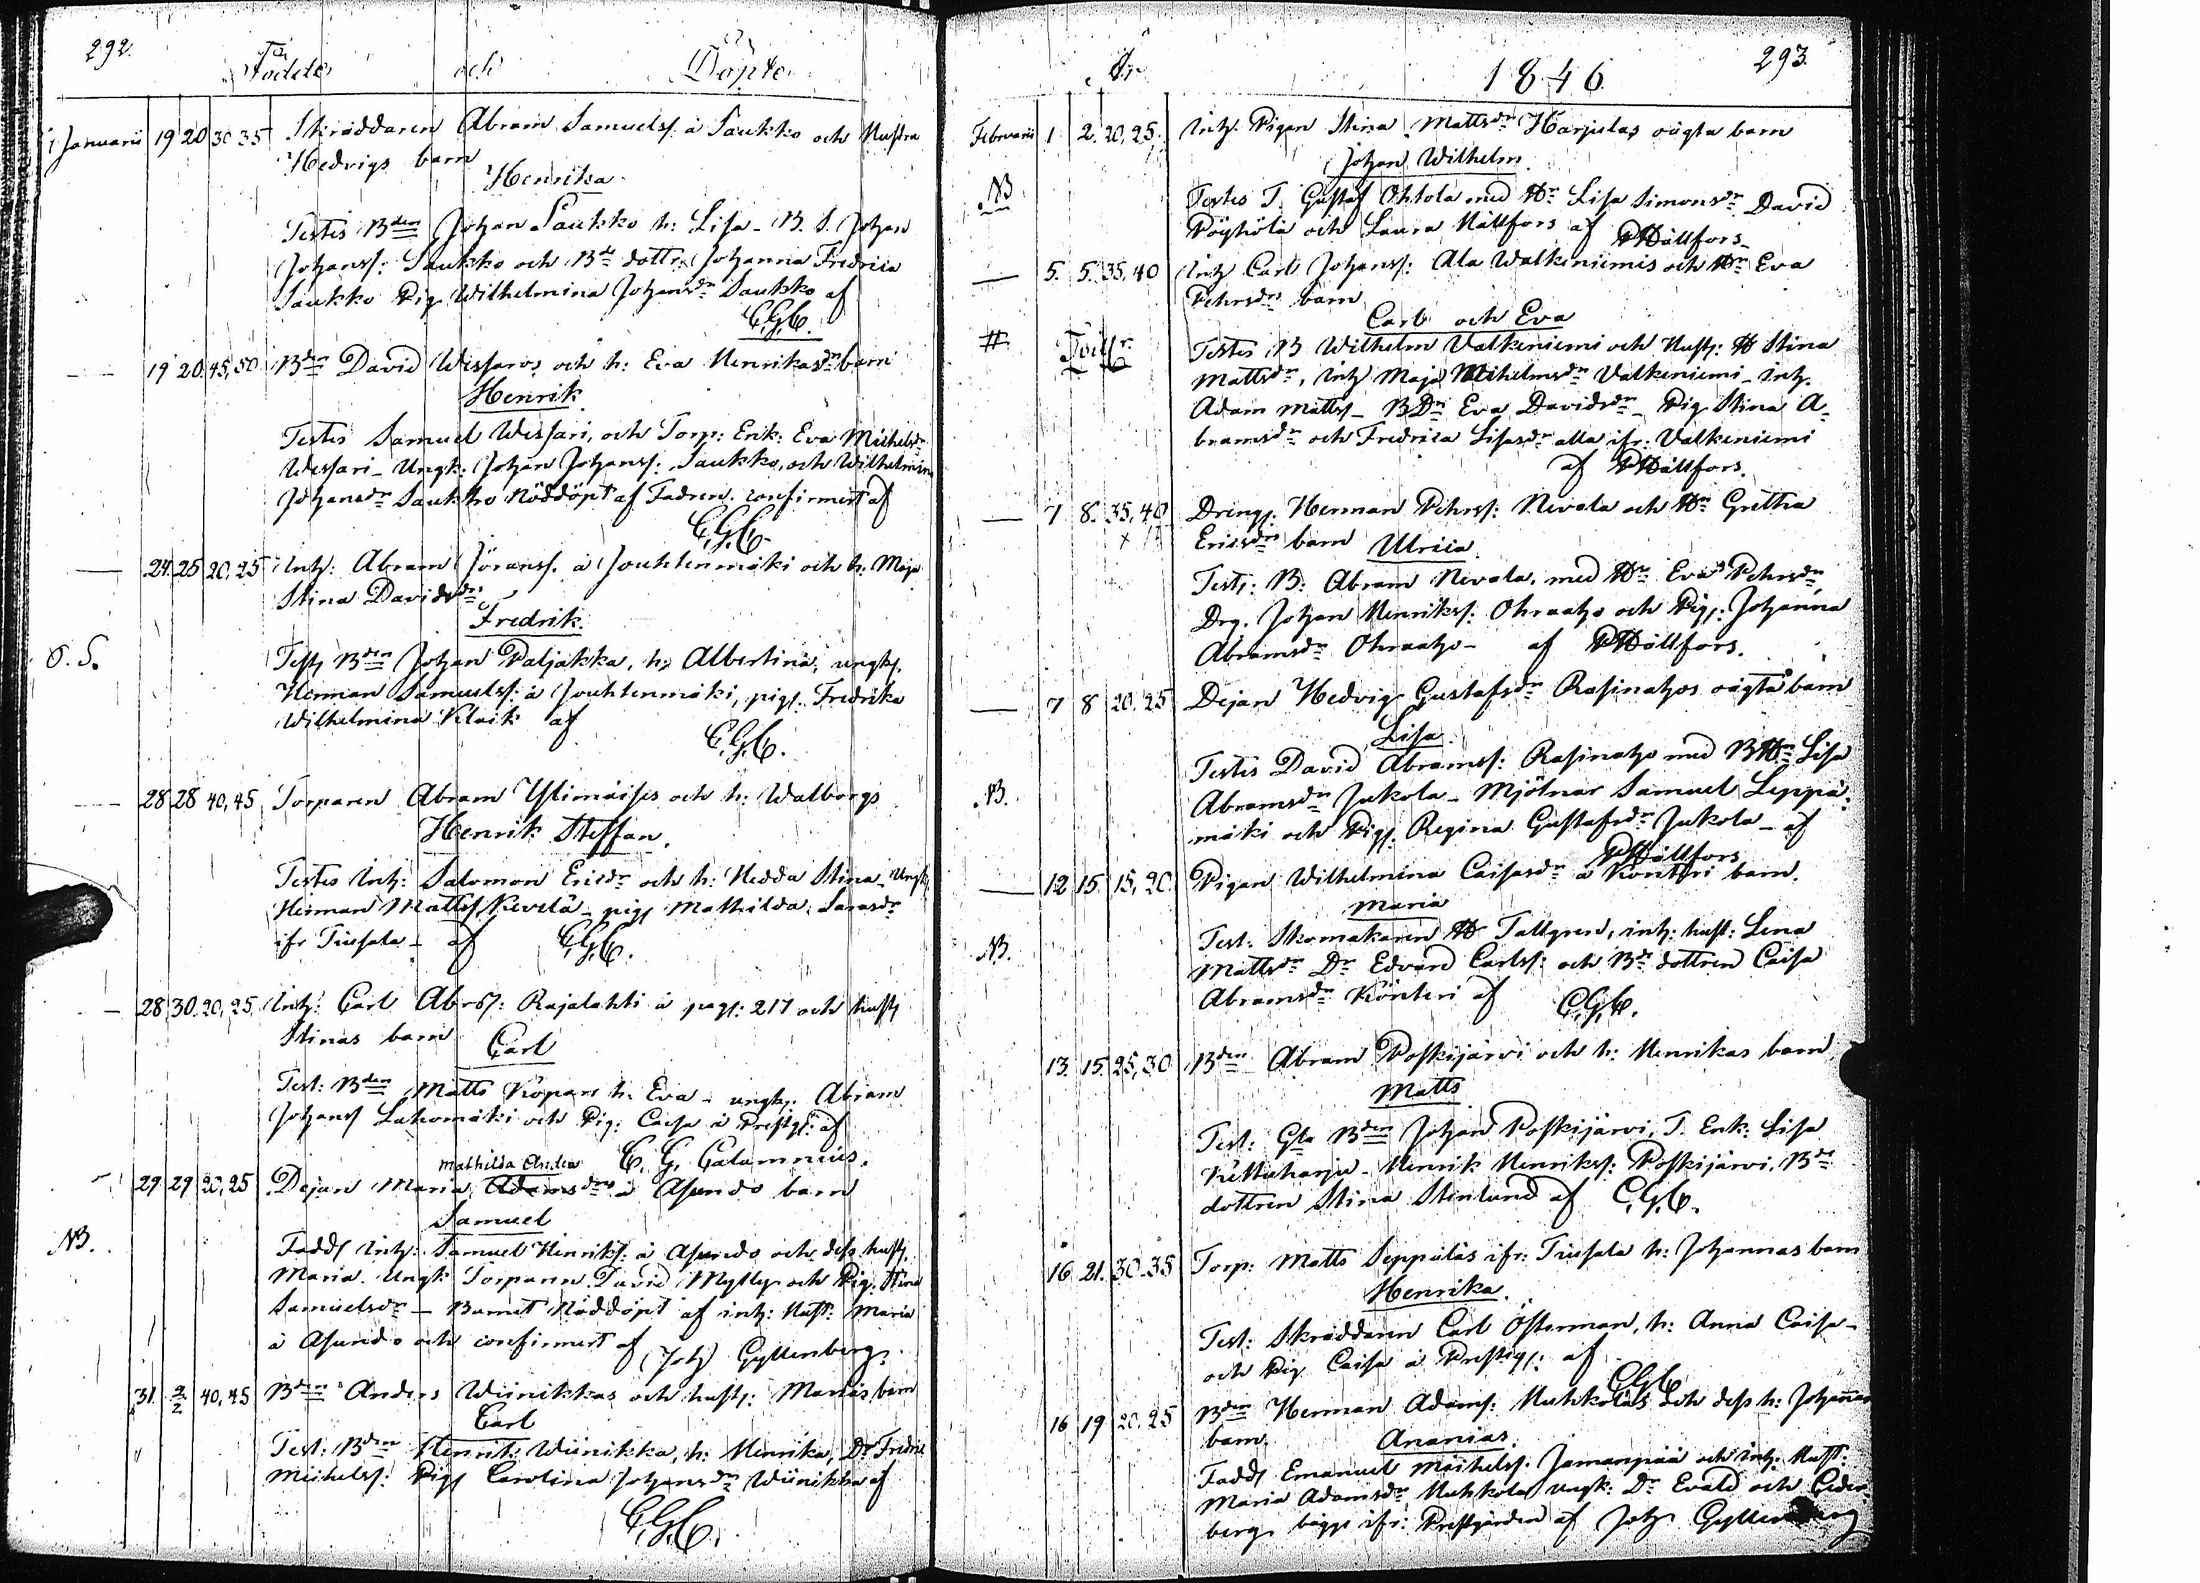 292.
Födde och Döpte
i Januarii 19 20 30 35 Skräddaren Abram Samuelss. à Saukko och Hustra
Hedvigs barn
Henrika
Testes Bden Johan Saukko h: Lisa - B. S. Johan
Johanss: Saukko och Bde dottr. Johanna Fredrica
Saukko Pig. Wilhelmina Johansdr Saukko af
C.G.C.
— 19 20 45,50 Bden David Wessaros och h: Eva Henriksdr barn
Henrik
Testes Samuel Wessari, och Torp: Enk: Eva Michelsdr
Wessari - Ungk: Johan Johanss: Saukko, och Wilhelmina
Johansdr Saukko Nöddöpt af Fadren. confirmert af
C.G.C.
— 24 25 20,25 Inh: Abram Göranss. à Jouhtenmäki och h: Maja
Stina Davidsdr
Fredrik.
O. S.
Test. Bden Johan Paljakka, h: Albertina, ungk.
Herman Samuelss: à Jouhtenmäki, pig. Fredrika
Wilhelmina Klaik af
C.G.C.
— 28 28 40,45 Torparen Abram Ylimäises och h: Walborgs
Henrik Steffan.
Testes Inh: Salomon Ericsdr och h: Hedda Stina - Ungk.
Herman Mattss. Kevelä - pig. Mathilda. Sarasdr
ifr Tiusala - af C.G.C.
— 28 30 20,25 Inh: Carl Abrss: Rajalahti à pag: 217 och hust.
Stinas barn
Carl
Test: Bden Matts Köpari h. Eva - ungk. Abram
Johanss Lahomäki och Pig: Caisa à Prestg: af
C. G. Calamnius.
Mathilda Andra
29 29 20,25 Dejan Maria Adamsdr à Asundo barn
Samuel
NB.
Fadd. Inh: Samuel Henrikss. à Asundo och dess hust.
Maria. Ungk: Torparen David Mylly och Pig. Stina
Samuelsdr — Barnet Nöddöpt af inh: Hust: Maria
à Asundo och confirmert af Joh Gyllenberg.
31 2/2 40,45 Bden Anders Wiinikkas och hust: Marias barn
Carl
Test: Bden Henrik Wiinikka, h: Henrika, Dr Fredric
Michelss: Pig. Carolina Johansdr Wiinikka af
C.G.C.
År 1846. 293.
Februarii 1 2. 20,25. Inh. Pigan Stina Mattsdr Harjulas oägta barn
Johan Wilhelm.
NB
Testes T. Gustaf Ohtola med Hu Lisa Simonsdr David
Pöyhölä och Laura Hällfors af PHällfors.
— 5. 5. 35,40 Inh Carl Johanss: Ala Walkeniemis och Hu Eva
Pehrsdrs barn
Carl och Eva
# Tvillr.
Testes B Wilhelm Valkeniemi och Hust: H Stina
Mattsdr, Inh Maja Wilhelmsdr Valkeniemi - inh.
Adam Mattss - BDr Eva Davidsdr - Pig Stina A-
bramsdr och Fredrica Lisasdr alla ifr: Valkeniemi
af PHällfors.
— 7 8. 35,40 Dreng. Herman Pehrss: Nevala och Hu Gretha
Ericsdrs barn Ulrica.
Test: B: Abram Nevala, med Hu Eva Pehrsdr
Drg. Johan Henrikss: Ohraaho och Pig: Johanna
Abramsdr Ohraaho - af PHällfors.
— 7 8 20,25 Dejan Hedvig Gustafsdr Rasinahos oägta barn
Lisa.
NB.
Testes David Abramss: Rasinaho med BHu Lisa
Abramsdr Jukola - Mjölnar Samuel Leppä-
mäki och Pig. Regina Gustafsdr Jukola - af
PHällfors
— 12 15. 15,20. Pigan Wilhelmina Caisasdr à Könteri barn.
Maria
NB.
Test: Skomakaren H Tallgren, inh: hust: Lena
Mattsdr Dr Edvard Carlss: och Bde dottren Caisa
Abramsdr Könteri af C.G.C.
13. 15. 25,30 Bden Abram Poskijärvi och h: Henrikas barn
Matts
Test: Gla Bden Johan Poskijärvi, T. Enk: Lisa
Kettuharju - Henrik Henrikss: Poskijärvi, Bde
dottren Stina Stenlund af C.G.C.
16 21. 30.35 Torp: Matts Seppäläs ifr: Tiusala h: Johannas barn
Henrika.
Test: Skräddaren Carl Österman, h: Anna Caisa -
och Pig Caisa à Prestg: af
C.G.C.
16 19 20.25 Bden Herman Adams: Huhkolas och dess h: Johannas
barn. Ananias.
Fadd. Emanuel Michelss. Jamanpää och inh. Hust:
Maria Adamsdr Huhkola ungk: Dr Evald och Ceder-
berg bägge ifr: Prestgården af Joh Gyllenberg